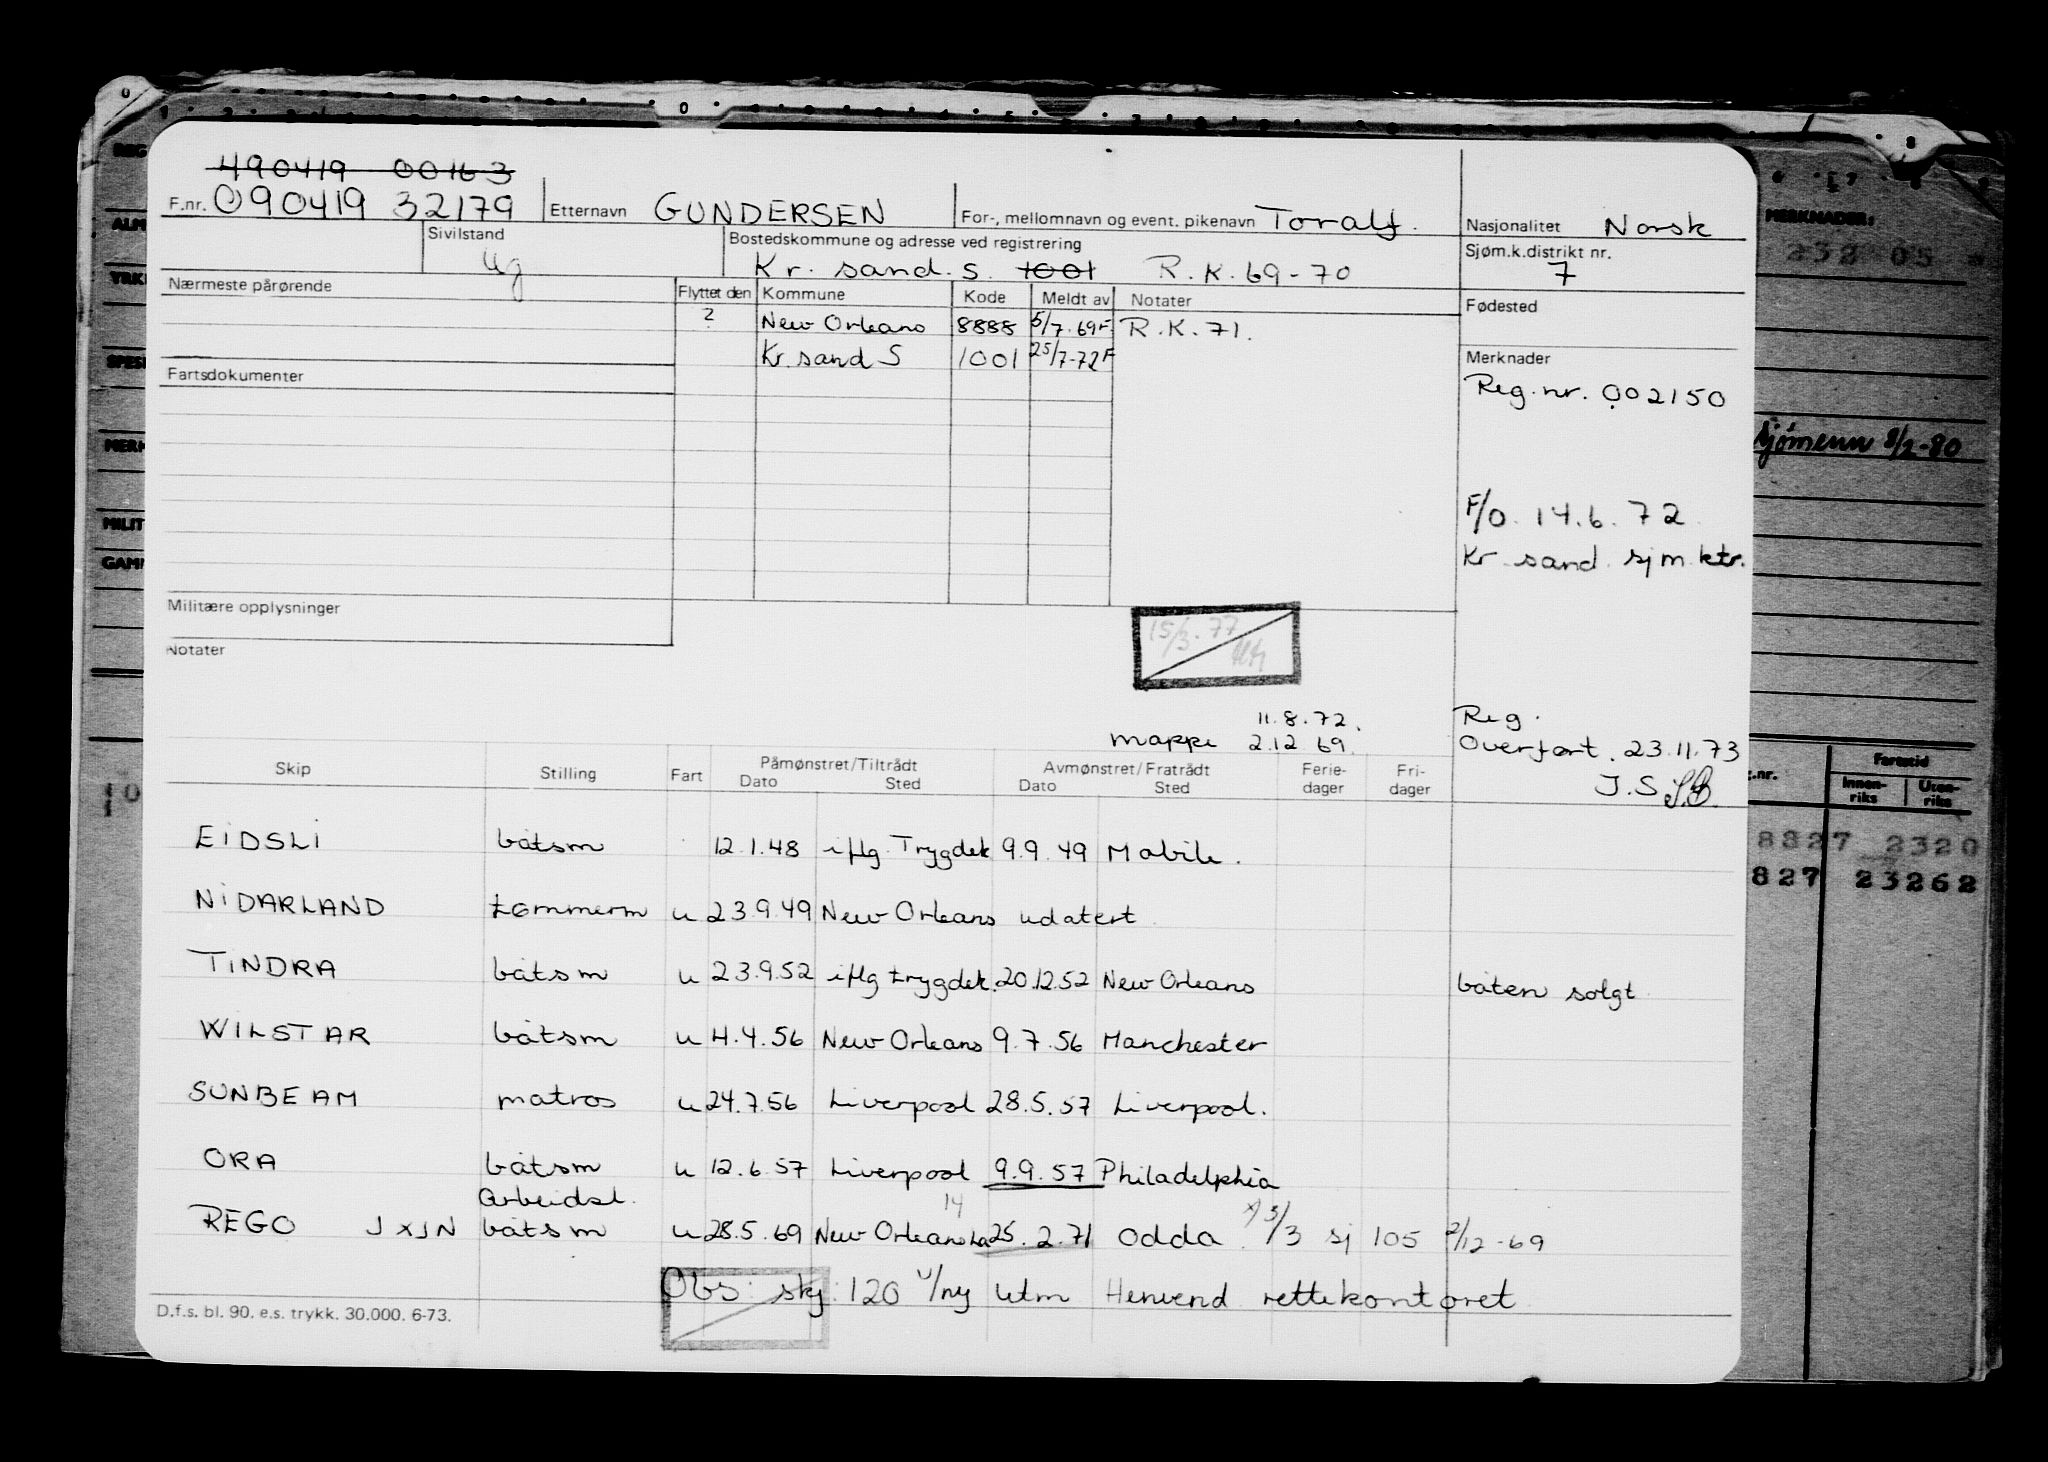 490419 00163
F.nr. 090419 32179 Etternavn GUNDERSEN For-, mellomnavn og event. pikenavn Toralf. Nasjonalitet Norsk
Sivilstand ug Bostedskommune og adresse ved registrering Kr. sand. S. 1001 R.K. 69-70 Sjøm.k.distrikt nr. 7
Nærmeste pårørende Flyttet den Kommune Kode Meldt av Notater Fødested
? New Orleans 8888 5/7.69F. R.K. 71.
Kr. sand S 1001 25/7-72F Merknader
Fartsdokumenter Reg. nr. 002150
F/O. 14.6.72
Kr. sand. sjm. ktr.
Militære opplysninger
Notater
15/3.77
11.8.72. Reg.
mappe 2.12.69. Overført. 23.11.73
J.S.
Skip Stilling Fart Påmønstret/Tiltrådt Dato Sted Avmønstret/Fratrådt Dato Sted Ferie-dager Fri-dager
EIDSLI båtsm 12.1.48 iflg. Trygdek 9.9.49 Mobile.
NIDARLAND tømmerm u 23.9.49 New Orleans udatert
TINDRA båtsm u 23.9.52 iflg trygdek. 20.12.52 New Orleans båten solgt
WILSTAR båtsm u 4.4.56 New Orleans 9.7.56 Manchester
SUNBEAM matros u 24.7.56 Liverpool 28.5.57 Liverpool.
ORA båtsm u 12.6.57 Liverpool 9.9.57 Philadelphia
arbeidsl. 14
REGO JXJN båtsm u 28.5.69 New Orleans La 25.2.71 Odda. x) 3/3 sj 105 2/12-69
Obs: skj: 120 u/ny utm Henvend rettekontoret
D.f.s. bl. 90. e.s. trykk. 30.000. 6-73.
MERKNADER:
232 05
sjømenn 8/2-80
Fartstid
Innen-riks Uten-riks
8827 2320
827 23262